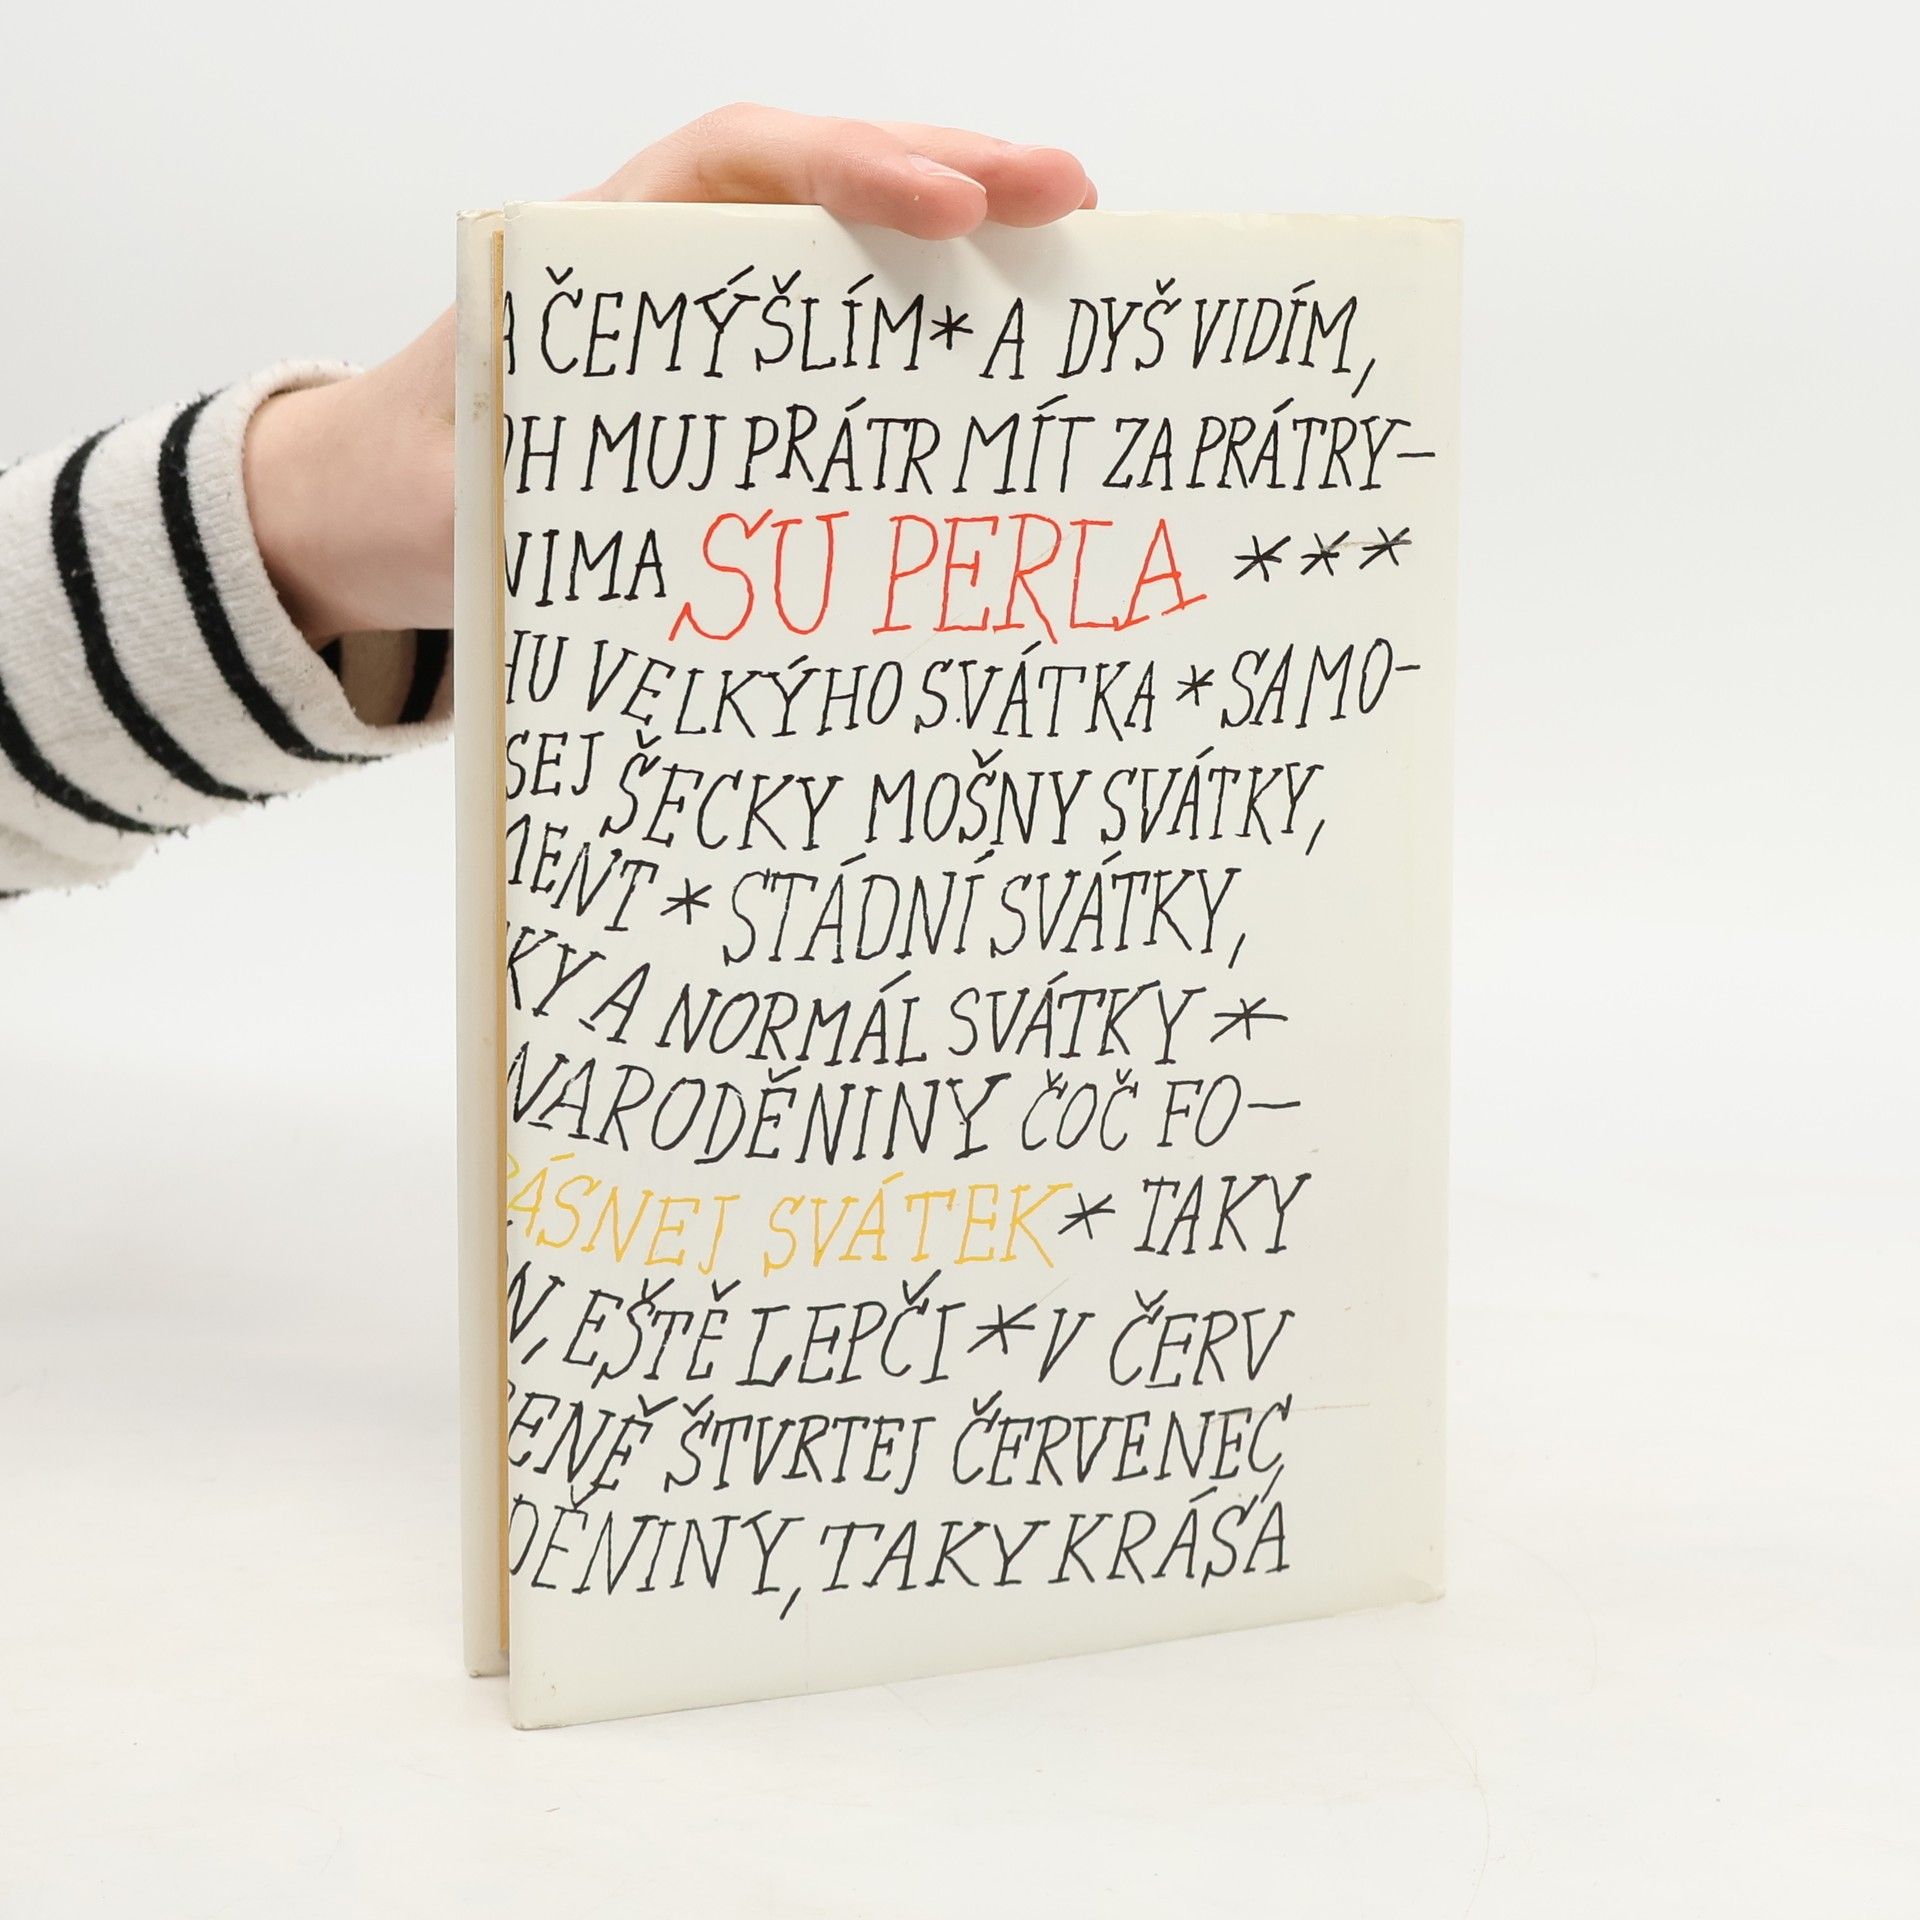 ČEMÝŠLÍM * A DYŠ VIDÍM,
MUJ PRÁTR MÍT ZA PRÁTRY-
NIMA SU PERLA ***
HU VELKÝHO SVÁTKA * SAMO-
SEJ ŠECKY MOŠNY SVÁTKY,
MENT * STÁDNÍ SVÁTKY,
KY A NORMÁL SVÁTKY *
NARODĚNINY ČOČ FO-
RÁSNEJ SVÁTEK * TAKY
N, EŠTĚ LEPČI * V ČERV
ENĚ ŠTVRTEJ ČERVENEC,
DĚNINY, TAKY KRÁSA